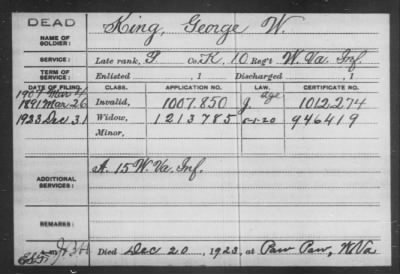 DEAD King, George W.
NAME OF SOLDIER:
SERVICE: Late rank, P Co. K, 10 Reg't W. Va. Inf.
TERM OF SERVICE: Enlisted , 1 Discharged , 1
DATE OF FILING. CLASS. APPLICATION NO. LAW. CERTIFICATE NO.
1907 Mar 4 age
1891 Mar 26 Invalid, 1007.850 J. 1012.274
1923 Dec 31 Widow, 1213785 5-1-20 946419
Minor,
ADDITIONAL SERVICES: A. 15 W. Va. Inf.
REMARKS:
Died Dec 20, 1923, at Paw Paw, W Va